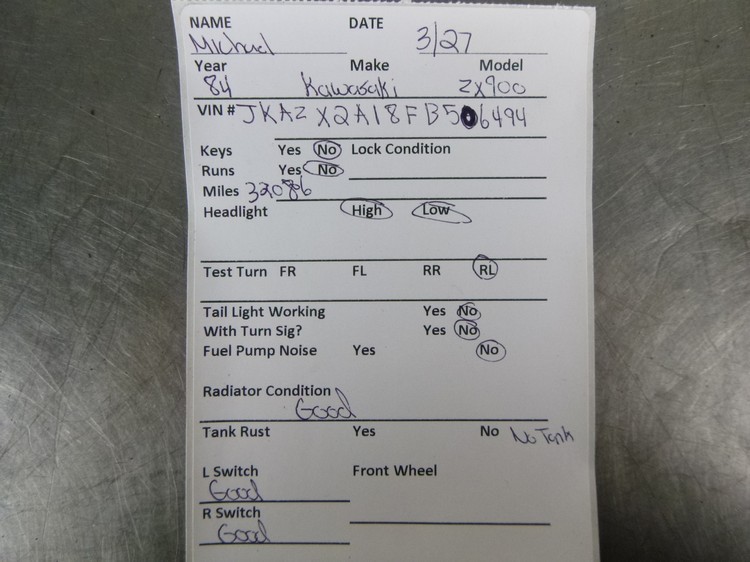 NAME DATE
Michael 3/27
Year Make Model
84 Kawasaki ZX900
VIN # JKAZX2A18FB506494
Keys Yes No Lock Condition
Runs Yes No
Miles 32086
Headlight High Low
Test Turn FR FL RR RL
Tail Light Working Yes No
With Turn Sig? Yes No
Fuel Pump Noise Yes No
Radiator Condition
Good
Tank Rust Yes No No Tank
L Switch Front Wheel
Good
R Switch
Good